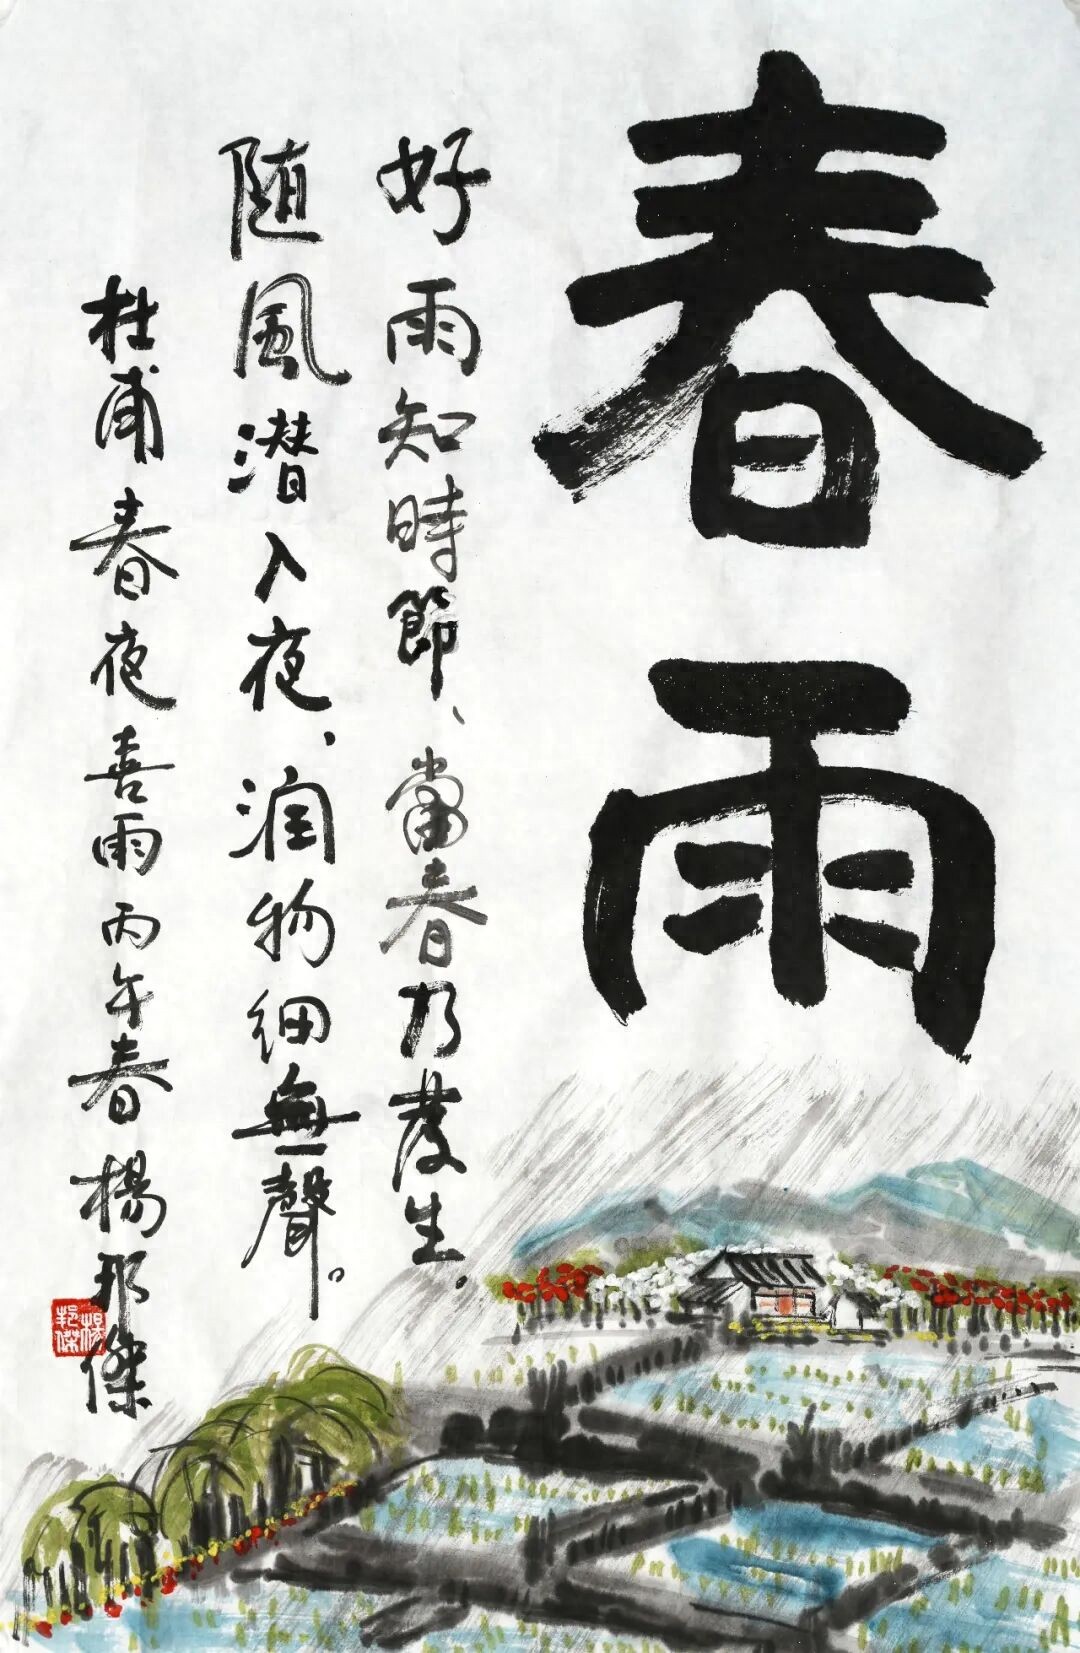 春雨
好雨知時節、當春乃發生.
随風潜入夜、润物细無聲。
杜甫春夜喜雨丙午春楊邦傑
楊邦傑